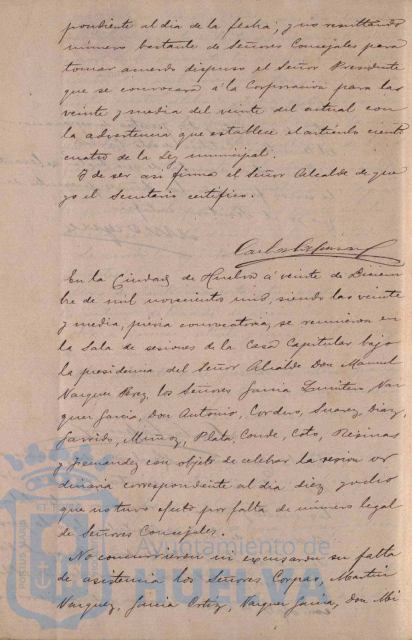 pondiente al dia de la fecha; y no resultando
número bastante de Señores Consejales para
tomar acuerdo dispuso el Señor Presidente
que se convocara á la Corporación para las
veinte y media del veinte del actual con
la advertencia que establece el artículo ciento
cuatro de la Ley municipal.
Y de ser asi firma el Señor Alcalde de que
yo el Secretario certifico.
En la Ciudad de Huelva á veinte de Diciem
bre de mil novecientos uno, siendo las veinte
y media, previa convocatoria, se reunieron en
la Sala de sesiones de la Casa Capitular bajo
la presidencia del Señor Alcalde Don Manuel
Vazquez Perez, los Señores Garcia Vaz
quez Garcia, Don Antonio, Cordero, Suarez, Diaz,
Garrido, Muñoz, Plata, Conde, Coto, Resinas
y Fernandez con objeto de celebrar la sesion or
dinaria correspondiente al dia diez y ocho
que no tuvo efecto por falta de número legal
de Señores Consejales.
No concurrieron ni excusaron su falta
de asistencia los Señores Corpas, Martin
Vazquez, Garcia Ortiz, Vazquez Garcia, Don Mi
Ayuntamiento de
HUELVA